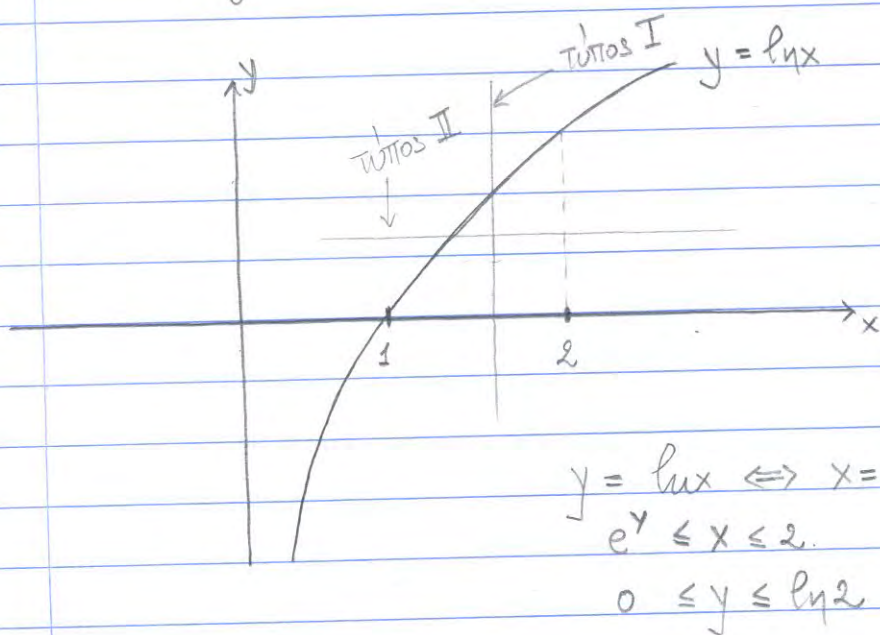 τύπος I
y = lnx
y
τύπος II
x
1
2
y = lnx ⇔ x =
e^y ≤ x ≤ 2.
0 ≤ y ≤ ln2